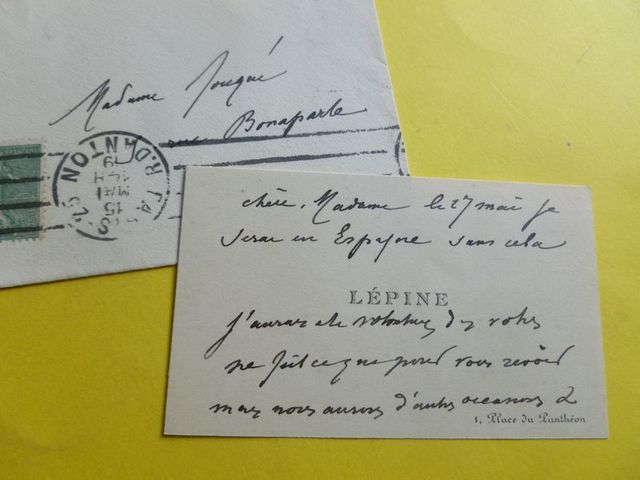 Madame Fouqué
rue Bonaparte
R. DANTON
PARIS
19
14 H
MAI
15
chère Madame le 27 mai je
serai en Espagne sans cela
LÉPINE
j'aurais été volontiers des vôtres
ne fût ce que pour vous revoir
mais nous aurons d'autres occasions
1, Place du Panthéon